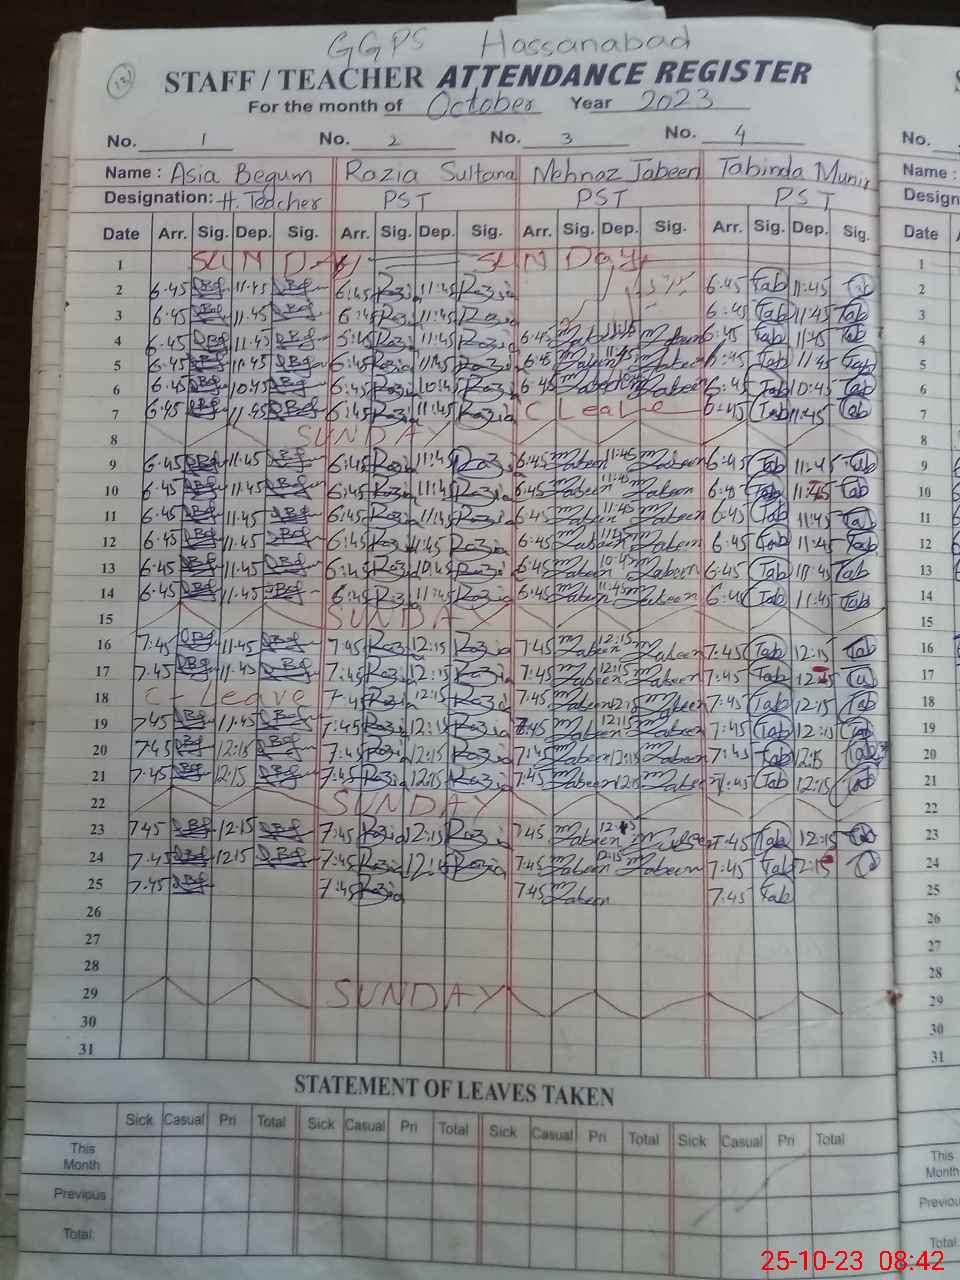 GGPS Hassanabad
131
STAFF / TEACHER ATTENDANCE REGISTER
For the month of October Year 2023
No. 1 No. 2 No. 3 No. 4 No.
Name : Asia Begum Razia Sultana Mehnaz Jabeen Tabinda Munir Name :
Designation: H. Teacher PST PST PST Design
Date Arr. Sig. Dep. Sig. Arr. Sig. Dep. Sig. Arr. Sig. Dep. Sig. Arr. Sig. Dep. Sig. Date
1 SUNDAY SUNDay 1
2 6:45 11:45 6:45 Razia 11:45 Razia 6:45 Tab 11:45 Tab 2
3 6:45 11:45 6:45 Razia 11:45 Razia 6:45 Tab 11:45 Tab 3
4 6:45 11:45 6:45 Razia 11:45 Razia 6:45 11:45 6:45 Tab 11:45 Tab 4
5 6:45 11:45 6:45 Razia 11:45 Razia 6:45 11:45 6:45 Tab 11:45 Tab 5
6 6:45 10:45 6:45 Razia 10:45 Razia 6:45 6:45 Tab 10:45 Tab 6
7 6:45 11:45 6:45 Razia 11:45 Razia C Leave 6:45 Tab 11:45 Tab 7
8 SUNDAY 8
9 6:45 11:45 6:45 Razia 11:45 Razia 6:45 Jabeen 11:45 Jabeen 6:45 Tab 11:45 Tab 9
10 6:45 11:45 6:45 Razia 11:45 Razia 6:45 Jabeen 11:45 Jabeen 6:45 Tab 11:45 Tab 10
11 6:45 11:45 6:45 Razia 11:45 Razia 6:45 Jabeen 11:45 Jabeen 6:45 Tab 11:45 Tab 11
12 6:45 11:45 6:45 Razia 11:45 Razia 6:45 Jabeen 11:45 Jabeen 6:45 Tab 11:45 Tab 12
13 6:45 11:45 6:45 Razia 10:45 Razia 6:45 Jabeen 10:45 Jabeen 6:45 Tab Tab 13
14 6:45 11:45 6:45 Razia 11:45 Razia 6:45 Jabeen 11:45 Jabeen 6:45 Tab 11:45 Tab 14
15 SUNDAY 15
16 7:45 11:45 7:45 Razia 12:15 Razia 7:45 Jabeen 12:15 Jabeen 7:45 Tab 12:15 Tab 16
17 7:45 11:45 7:45 Razia 12:15 Razia 7:45 Jabeen 12:15 Jabeen 7:45 Tab 17
18 C-Leave 7:45 Razia 12:15 Razia 7:45 Jabeen 12:15 Jabeen 7:45 Tab 12:15 Tab 18
19 7:45 11:45 7:45 Razia 12:15 Razia 7:45 Jabeen 12:15 Jabeen 7:45 Tab 12:15 Tab 19
20 7:45 12:15 7:45 Razia 12:15 Razia 7:45 Jabeen 12:15 Jabeen 7:45 Tab 12:15 Tab 20
21 7:45 12:15 7:45 Razia 12:15 Razia 7:45 Jabeen Jabeen 7:45 Tab 12:15 Tab 21
22 SUNDAY 22
23 7:45 12:15 7:45 Razia 12:15 Razia 7:45 7:45 Tab 12:15 Tab 23
24 7:45 12:15 7:45 Razia Razia 7:45 Jabeen 12:15 Jabeen 7:45 Tab 12:15 24
25 7:45 7:45 Razia 7:45 Jabeen 7:45 Tab 25
26 26
27 27
28 28
29 SUNDAY 29
30 30
31 31
STATEMENT OF LEAVES TAKEN
Sick Casual Pri Total Sick Casual Pri Total Sick Casual Pri Total Sick Casual Pri Total
This Month This Month
Previous Previou
Total: Total:
25-10-23 08:42